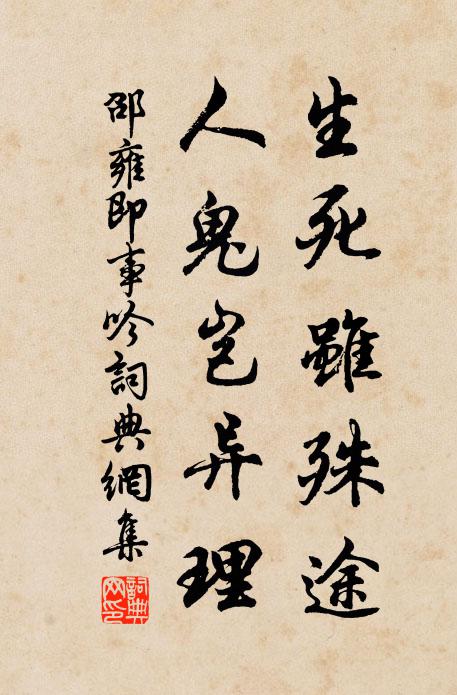 生死雖殊途
人鬼岂异理
邵雍即事吟詞典網集
詞典网印